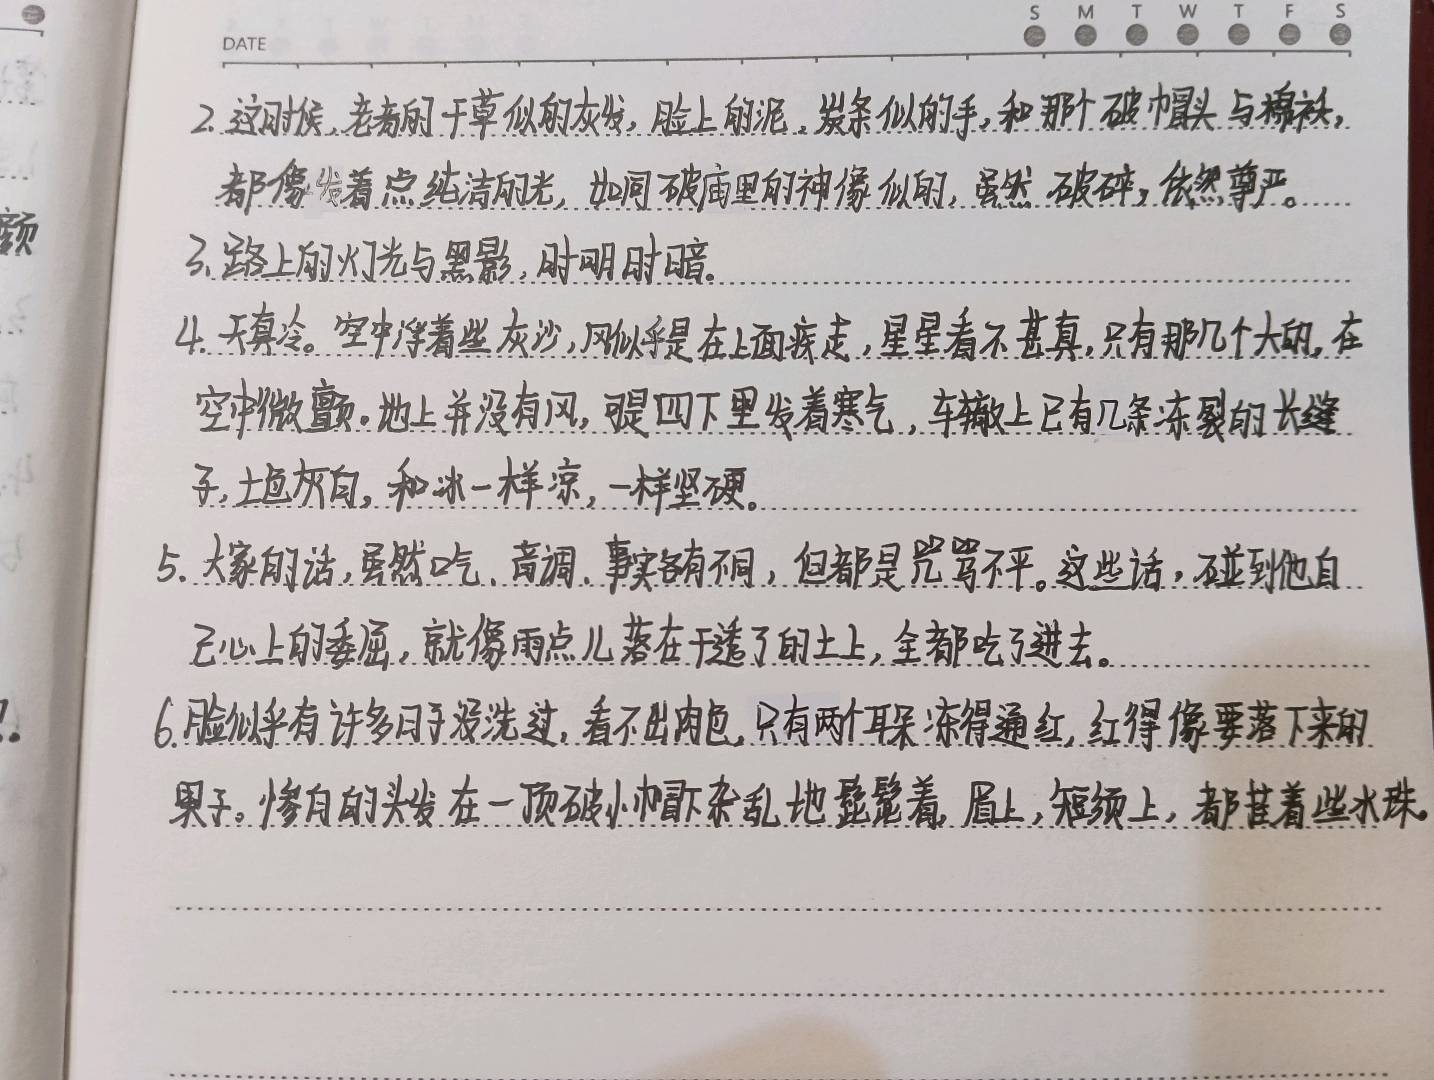 DATE
S M T W T F S
2. 这时候,老者的干草似的灰发,脸上的泥,炭条似的手,和那个破帽头与棉袄,
都像发着点纯洁的光,如同破庙里的神像似的,虽然破碎,依然尊严。
3. 路上的灯光与黑影,时明时暗。
4. 天真冷。空中浮着些灰沙,风似乎是在上面疾走,星星看不甚真,只有那几个大的,在
空中微颤。地上并没有风,可是四下里发着寒气,车辙上已有几条冻裂的长缝
子,土色灰白,和冰一样凉,一样坚硬。
5. 大家的话,虽然口气、音调、事实各有不同,但都是咒骂不平。这些话,碰到他自
己心上的委屈,就像雨点儿落在干透了的土上,全都吃了进去。
6. 脸似乎有许多日子没洗过,看不出肉色,只有两个耳朵冻得通红,红得像要落下来的
果子。惨白的头发在一顶破小帽下杂乱地髭髭着,眉上,短须上,都挂着些水珠。
颤